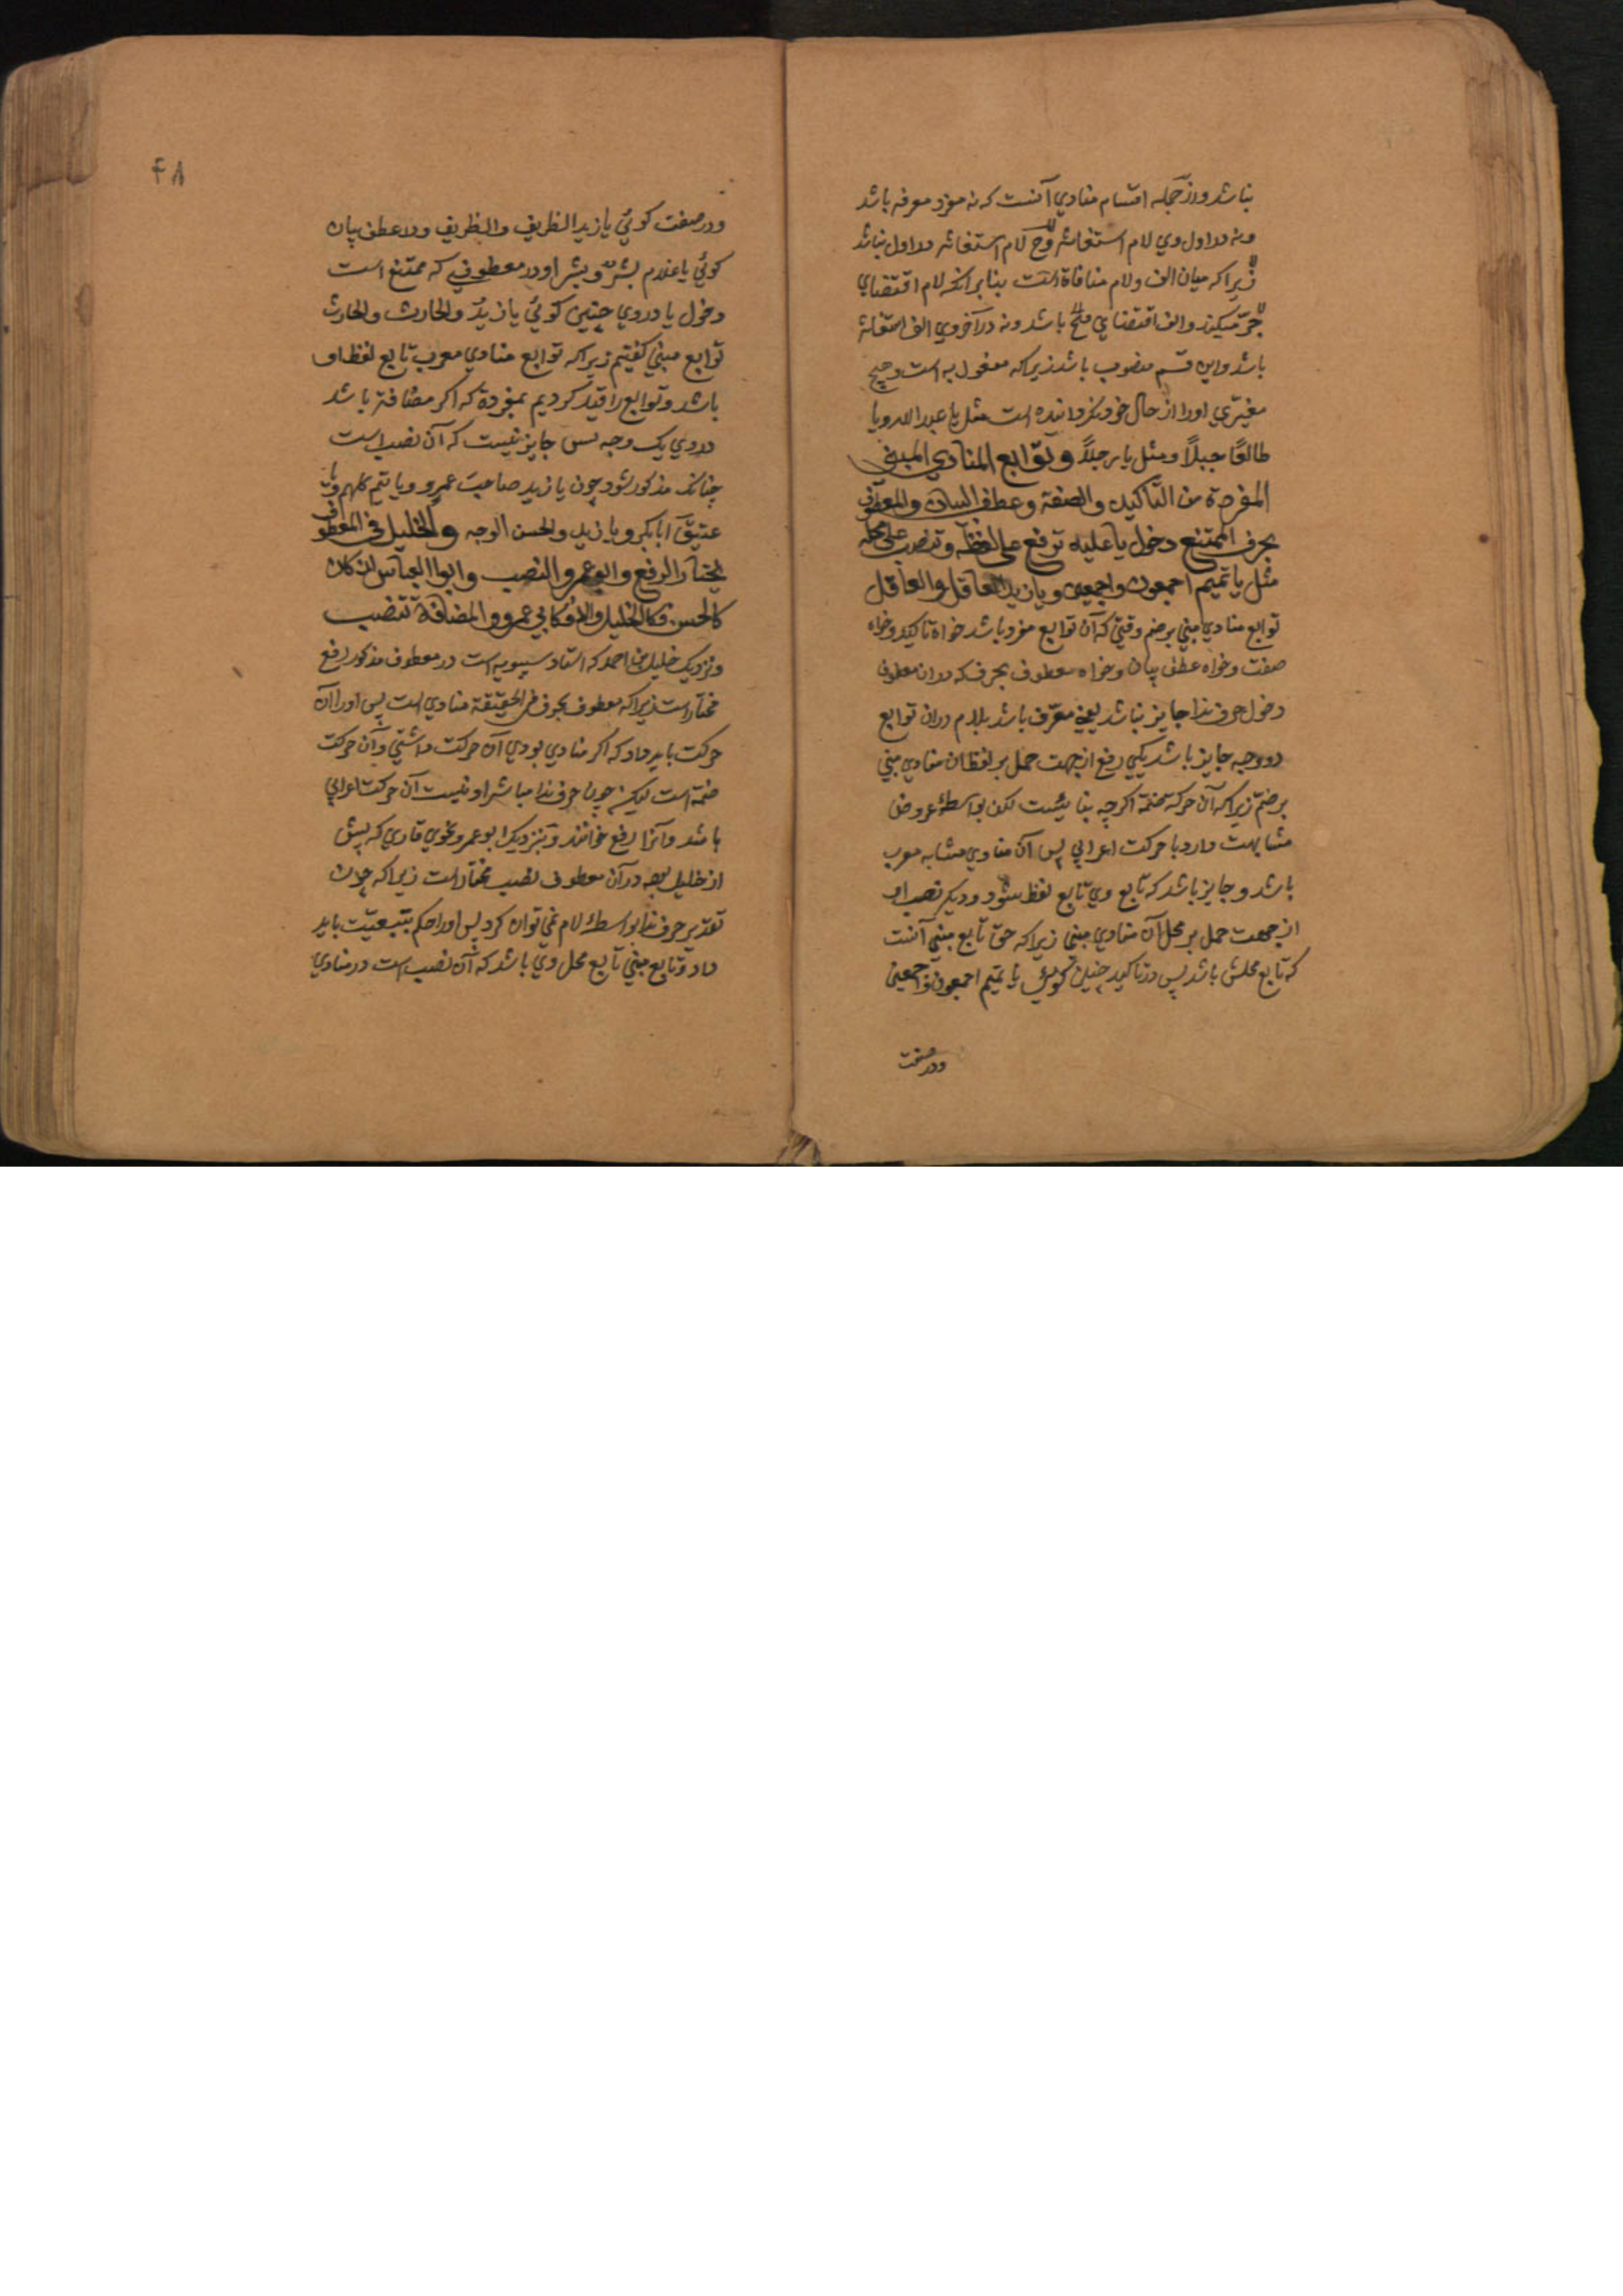 نباشد و از جمله اقسام منادي آنست که نه مفرد معرفه باشد
و نه در اول وي لام استغاثه و ح لام استغاثه در اول نباشد
زيراکه ميان الف و لام منافاة است بنابر آنکه لام اقتضاي
جر ميکند و الف اقتضاي فتح باشد و نه در آخر وي الف استغاثه
باشد و اين قسم منصوب باشد زيراکه مفعول به است و هيچ
مغيري او را از حال خود نگردانيده است مثل يا عبد الله و يا
طالعًا جبلاً و مثل يا رجلاً و توابع المنادي المبني
المفردة من التاکيد والصفة و عطف البيان والمعطوف
بحرف الممتنع دخول يا عليه ترفع على لفظه و تنصب على محله
مثل يا تميم اجمعون و اجمعين و يا زيد العاقل والعاقل
توابع منادي مبني بر ضم وقتي که آن توابع مفرد باشد خواه تاکيد و خواه
صفت و خواه عطف بيان و خواه معطوف بحرف که در ان معطوف
دخول حرف ندا جايز نباشد يعني معرف باشد بلام در ان توابع
دو وجه جايز باشد يکي رفع از جهت حمل بر لفظ ان منادي مبني
بر ضم زيراکه آن حرکه ضمة اگرچه بنائيست لکن بواسطۀ عروض
مشابهت دارد با حرکت اعرابي پس آن منادي مشابه معرب
باشد و جايز باشد که تابع وي تابع لفظ شود و ديکر نصب او
از جهت حمل بر محل آن منادي مبني زيراکه حق تابع مبني آنست
که تابع محلش باشد پس در تاکيد چنين گوئي يا تميم اجمعون و اجمعين
و در صفت
۴۸
و در صفت کوئي يا زيد الظريف والظريف و در عطف بيان
کوئي يا غلام بشر و بشرا و در معطوفي که ممتنع است
دخول يا در وي چنين کوئي يا زيد والحارث والحارث
توابع مبني کفتيم زيراکه توابع منادي معرب تابع لفظ او
باشد و توابع را قيد کرديم بمفردة که اکر مضافة باشد
در وي يک وجه بس جايز نيست که آن نصب است
چنانکه مذکور شود چون يا زيد صاحب عمرو و يا تيم کلهم و يا
عتيق ابا بکر و يا زيد والحسن الوجه والخليل في المعطوف
يختار الرفع و ابو عمرو النصب و ابوا العباس ان کان
کالحسن فکالخليل والا فکابي عمرو والمضافة تنصب
و نزديک خليل بن احمد که استاد سيبويه است در معطوف مذکور رفع
مختار است زيراکه معطوف بحرف في الحقيقة منادي است پس او را آن
حرکت بايد داد که اکر منادي بودي آن حرکت داشتي و آن حرکت
ضمة است ليکن چون حرف ندا مباشر او نيست آن حرکت اعرابي
باشد و آنرا رفع خوانند و بنزديک ابو عمرو نحوي قاري که پيش
از خليل بوده در آن معطوف نصب مختار است زيراکه چون
تقدير حرف ندا بواسطۀ لام نمي توان کرد پس او را حکم تبعيت بايد
داد و تابع مبني تابع محل وي باشد که آن نصب است در منادي